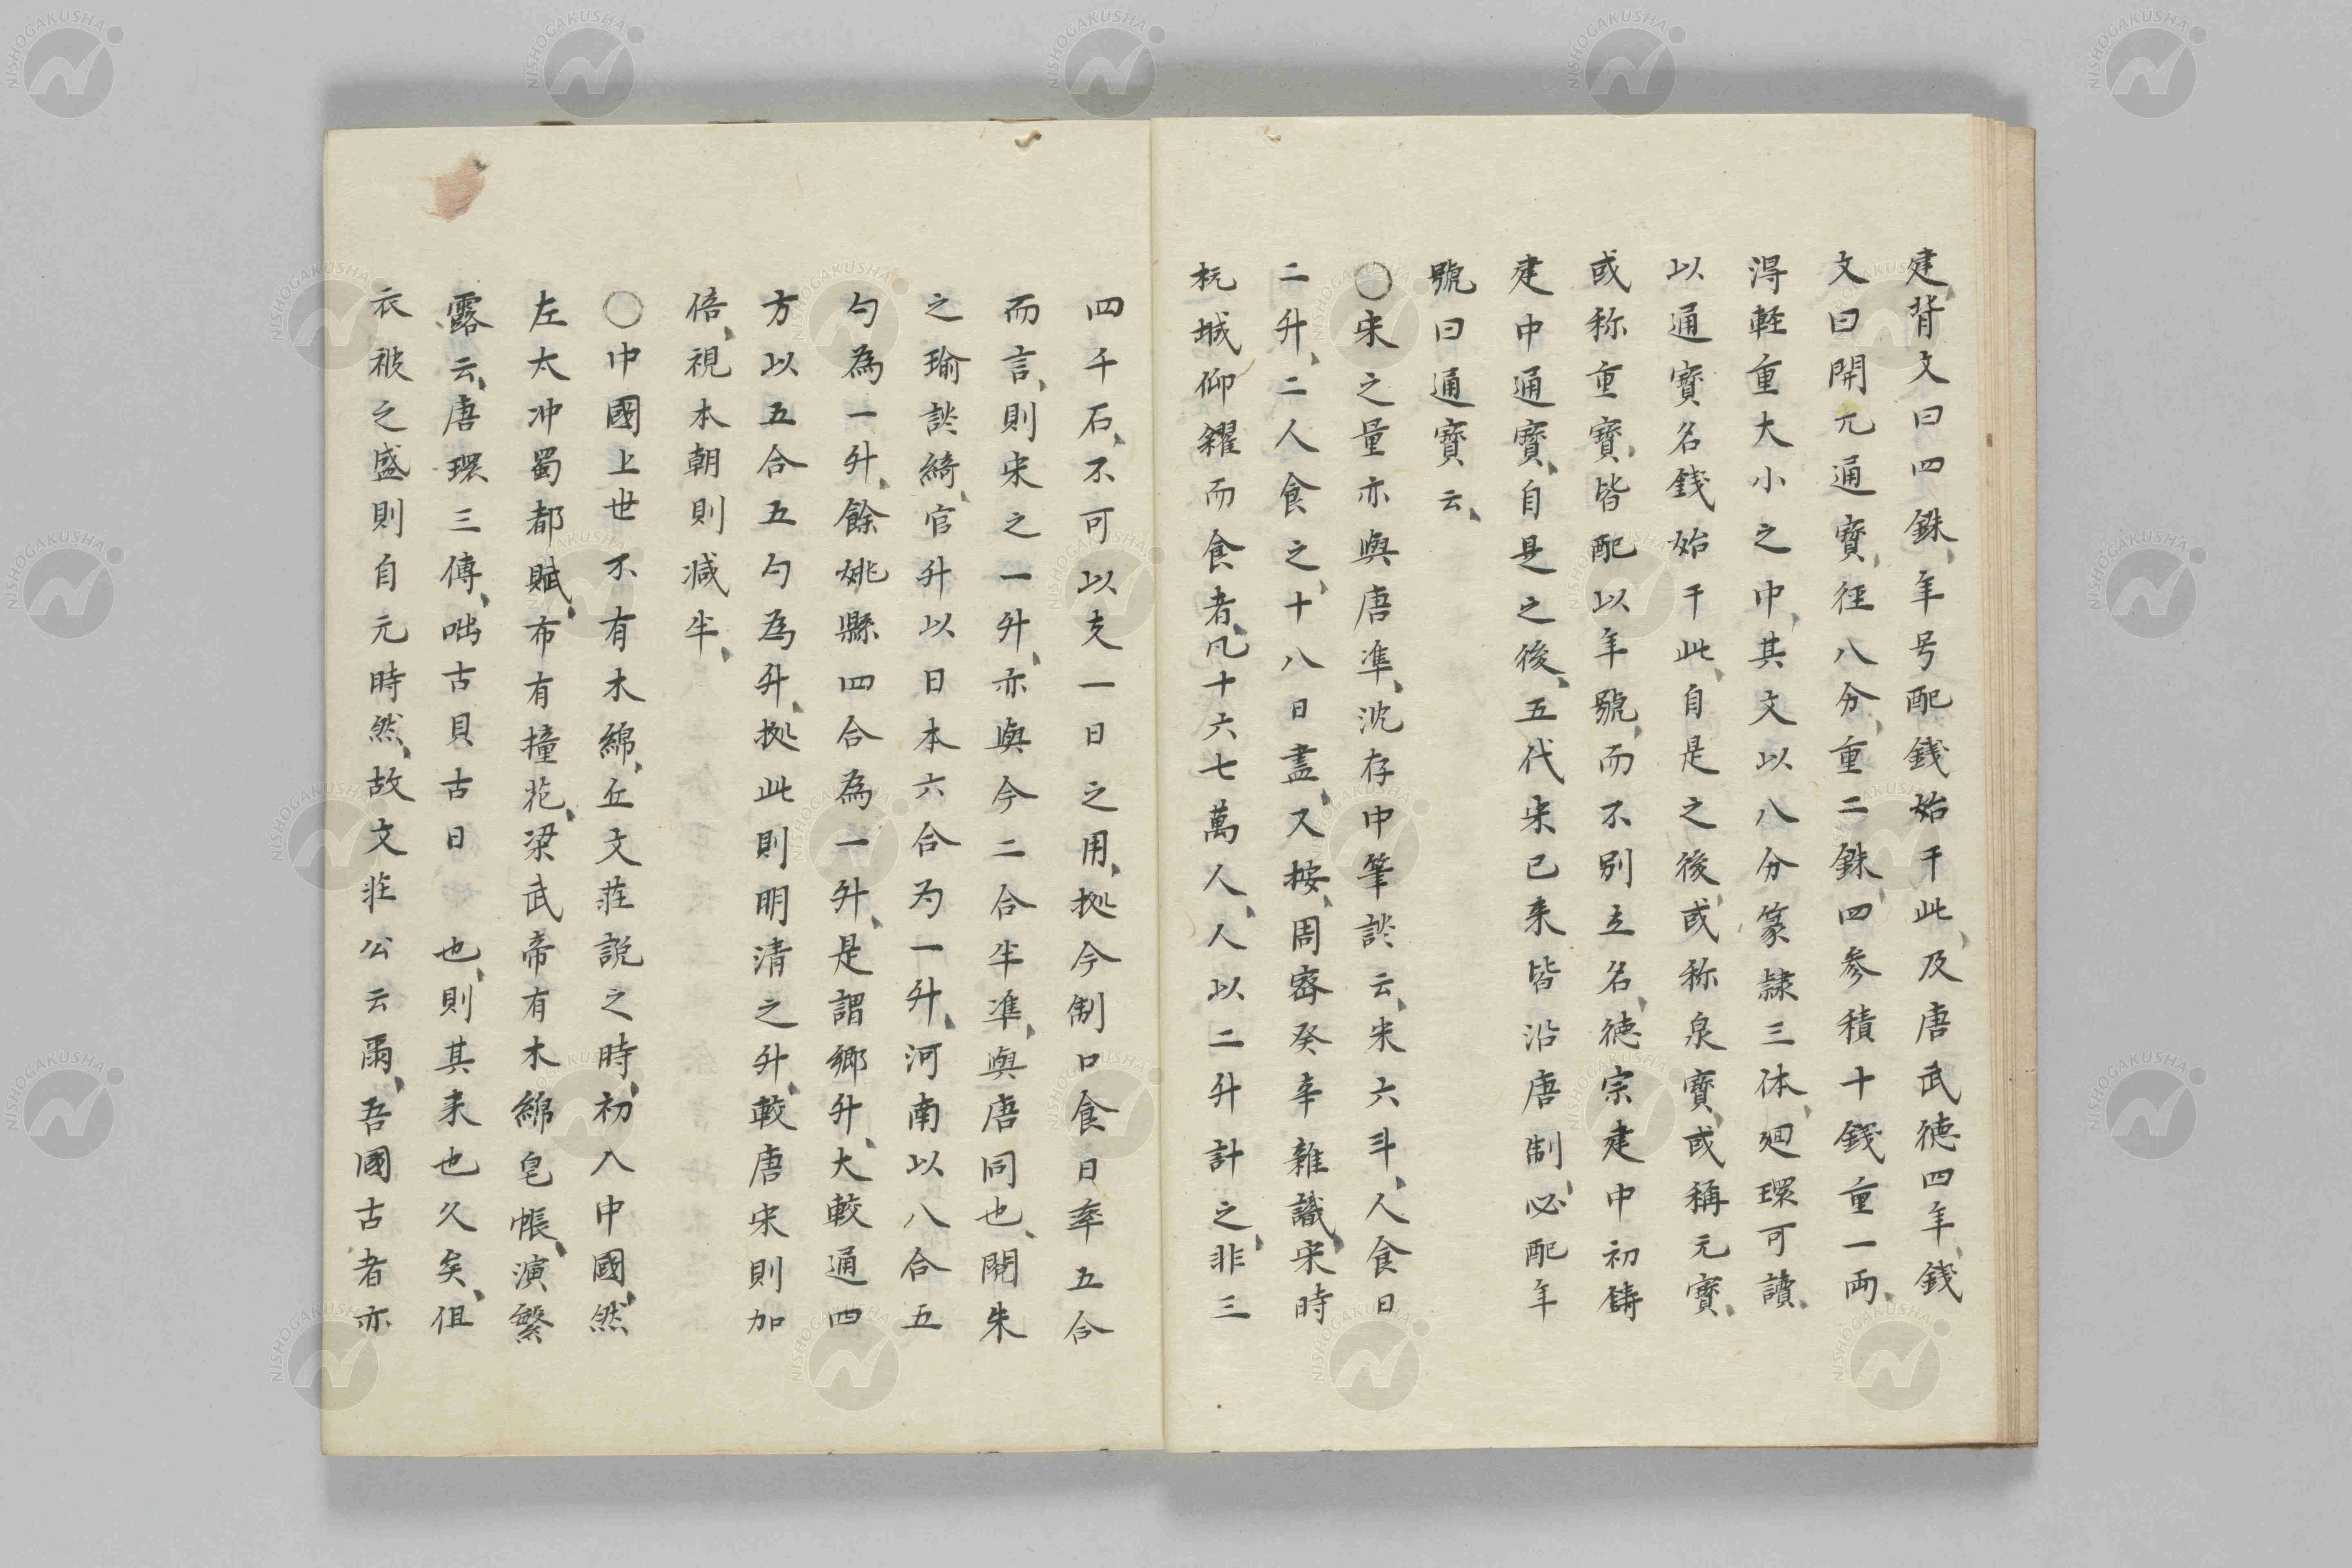 建、背文曰四銖、年号配銭始于此、及唐武徳四年、銭
文曰開元通寶、徑八分、重二銖、四参積十錢重一両、
淂軽重大小之中、其文以八分篆隷三体、廻環可讀、
以通寶名錢始于此、自是之後、或称泉寶、或稱元寶、
或称重寶、皆配以年號、而不別立名、徳宗建中初鋳
建中通寶、自是之後、五代宋已来皆沿唐制、必配年
號曰通寶云、
〇宋之量亦與唐準、沈存中筆談云、米六斗、人食日
二升、二人食之、十八日盡、又按、周密癸辛雜識、宋時
杭城仰糴而食者、凡十六七萬人、人以二升計之、非三
四千石、不可以支一日之用、拠今制口食日率五合
而言、則宋之一升、亦與今二合半準、與唐同也、聞朱
之瑜談綺、官升以日本六合为一升、河南以八合五
勺為一升、餘姚縣四合為一升、是謂郷升、大較通四
方以五合五勺為升、拠此則明清之升、較唐宋則加
倍、視本朝則減半、
〇中國上世不有木綿、丘文莊説之時、初入中國、然
左太冲蜀都賦、布有橦花、梁武帝有木綿皂帳、演繁
露云、唐環三傳、咄古貝古日也、則其来也久矣、但
衣被之盛則自元時然、故文莊公云爾、吾國古者亦
NISHOGAKUSHA